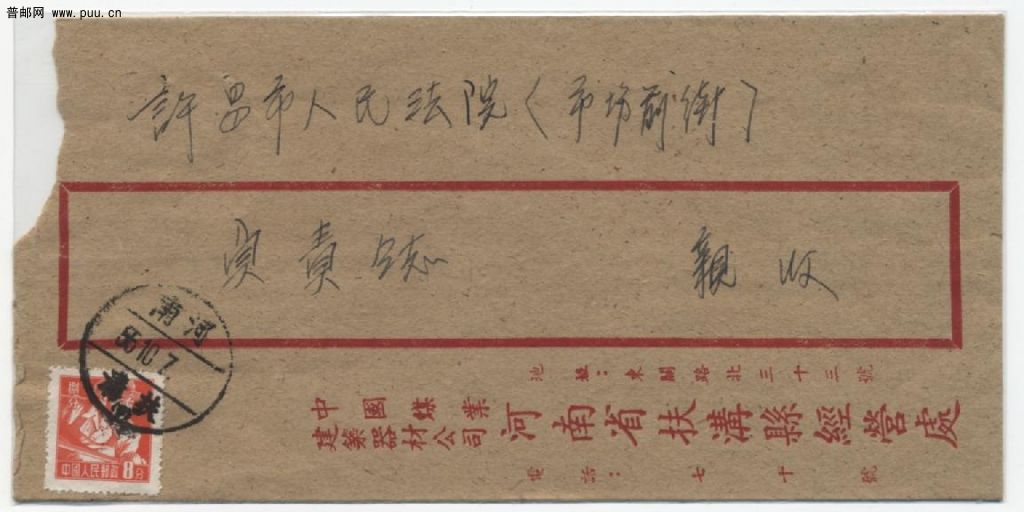 普邮网
www.puu.cn
許昌市人民法院（市坊前街）
責 同志 親收
河南
56.10.7.
扶溝
中國人民郵政
8分
地 址：東關路北三十三號
中國煤業
建築器材公司
河南省扶溝縣經營處
電 話：七十號